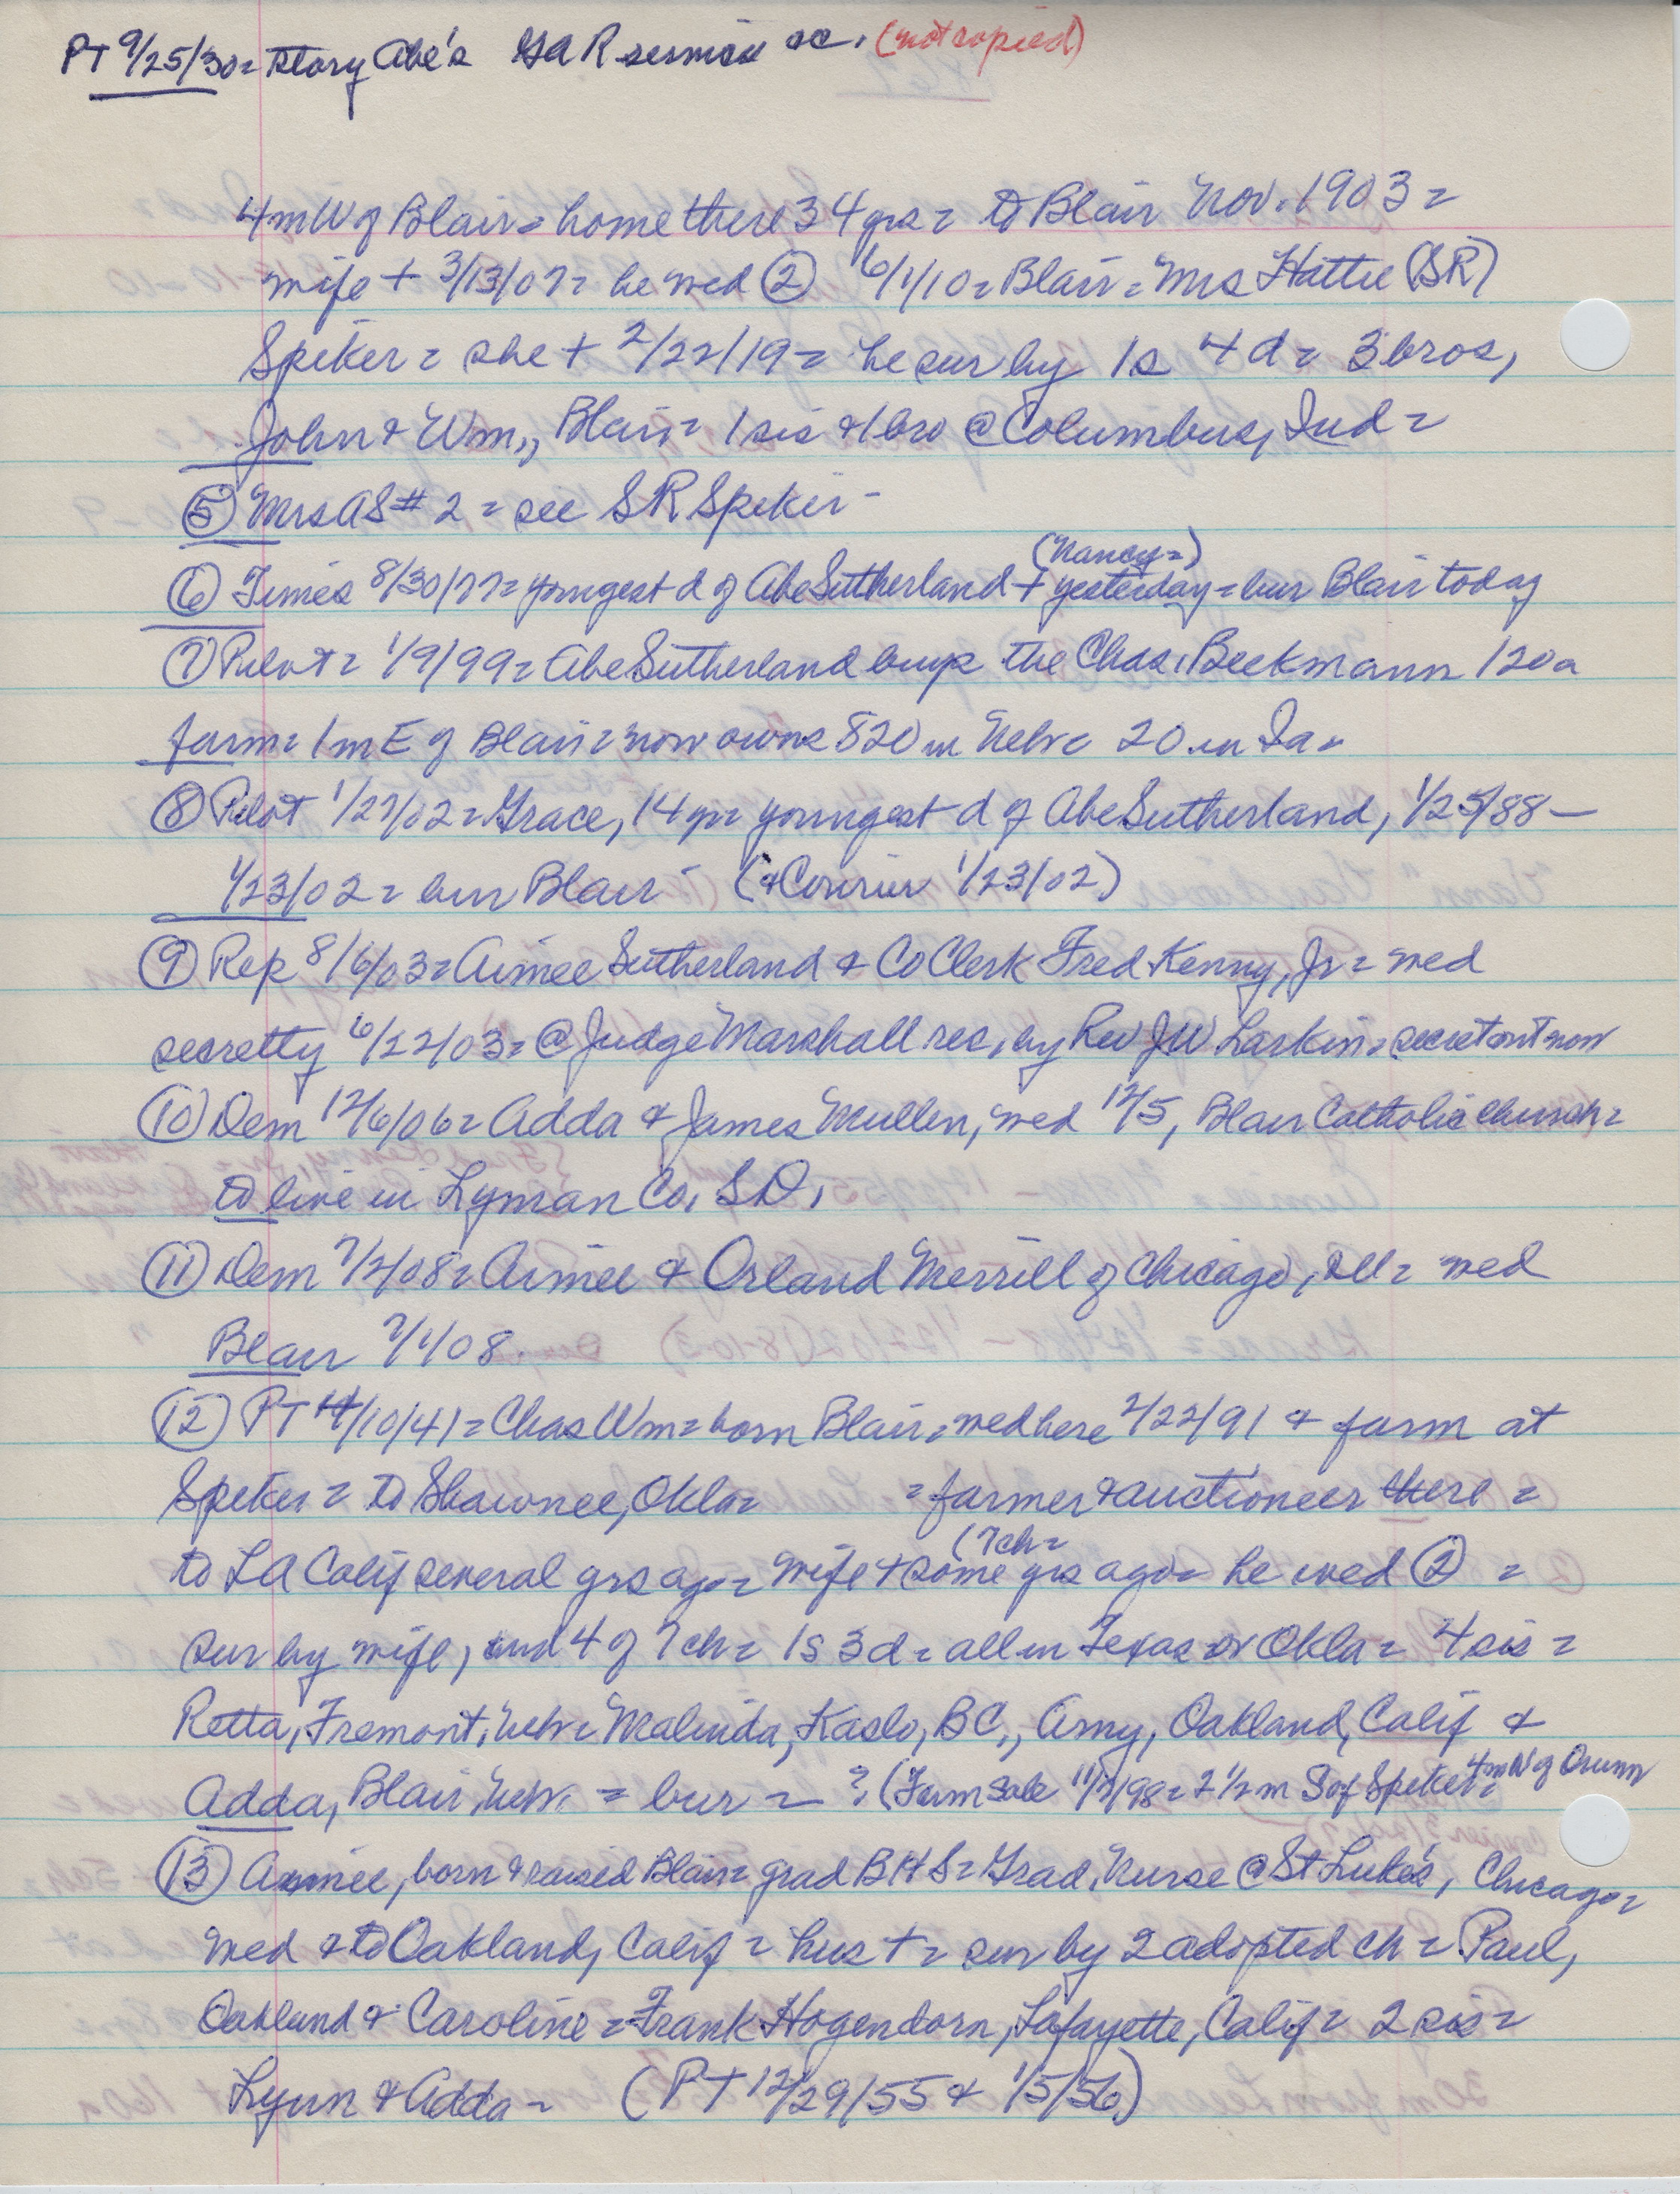 PT 9/25/30= Story Abe's GAR service &c. (not copied)
4 m W of Blair= home there 34 yrs= to Blair Nov. 1903=
wife + 3/13/07= he wed ② 6/1/10= Blair= Mrs Hattie (SR)
Speker= she + 2/22/19= he sur by 1s 4d= 3 bros,
John & Wm,, Blair= 1 sis & 1 bro @ Columbus, Ind=
⑤ Mrs AS # 2= see SR Speker-
(Nancy=)
⑥ Times 8/30/77= youngest d of Abe Sutherland + yesterday= bur Blair today
⑦ Pilot= 1/9/99= Abe Sutherland buys the Chas. Beekmann 120a
farm= 1 m E of Blair= now owns 820 in Nebr & 20 in Ia-
⑧ Pilot 1/27/02= Grace, 14 yr= youngest d of Abe Sutherland, 1/25/88-
1/23/02= bur Blair- (& Courier 1/23/02)
⑨ Rep 8/6/03= Aimee Sutherland & Co Clerk Fred Kenny, Jr= wed
secretty 6/22/03= @ Judge Marshall res, by Rev JW Larkin= secret out now
⑩ Dem 12/6/06= Adda & James Mullen, wed 12/5, Blair Catholic church=
to live in Lyman Co, SD,
⑪ Dem 7/2/08= Aimee & Orland Merrill of Chicago, Ill= wed
Blair 7/1/08.
⑫ PT /10/41= Chas Wm= born Blair, wed here 2/22/91 & farm at
Speker= to Shawnee, Okla= = farmer & auctioneer there=
(7ch=
to LA Calif several yrs ago= wife + some yrs ago= he wed ② =
sur by wife, and 4 of 7 ch= 1s 3d= all in Texas or Okla= 4 sis=
Retta, Fremont, Nebr= Malinda, Kaslo, BC,, Amy, Oakland, Calif &
Adda, Blair, Nebr. = bur = ? (Farm Sale 11/ /98= 2 1/2 m S of Speker= 4 m W of Orum
⑬ Aimee, born & raised Blair= grad BHS= Grad, Nurse @ St Luke's, Chicago=
wed & to Oakland, Calif= hus += sur by 2 adopted ch= Paul,
Oakland & Caroline= Frank Hogendorn, Lafayette, Calif= 2 sis=
Lynn & Adda- (PT 12/29/55 & 1/5/56)